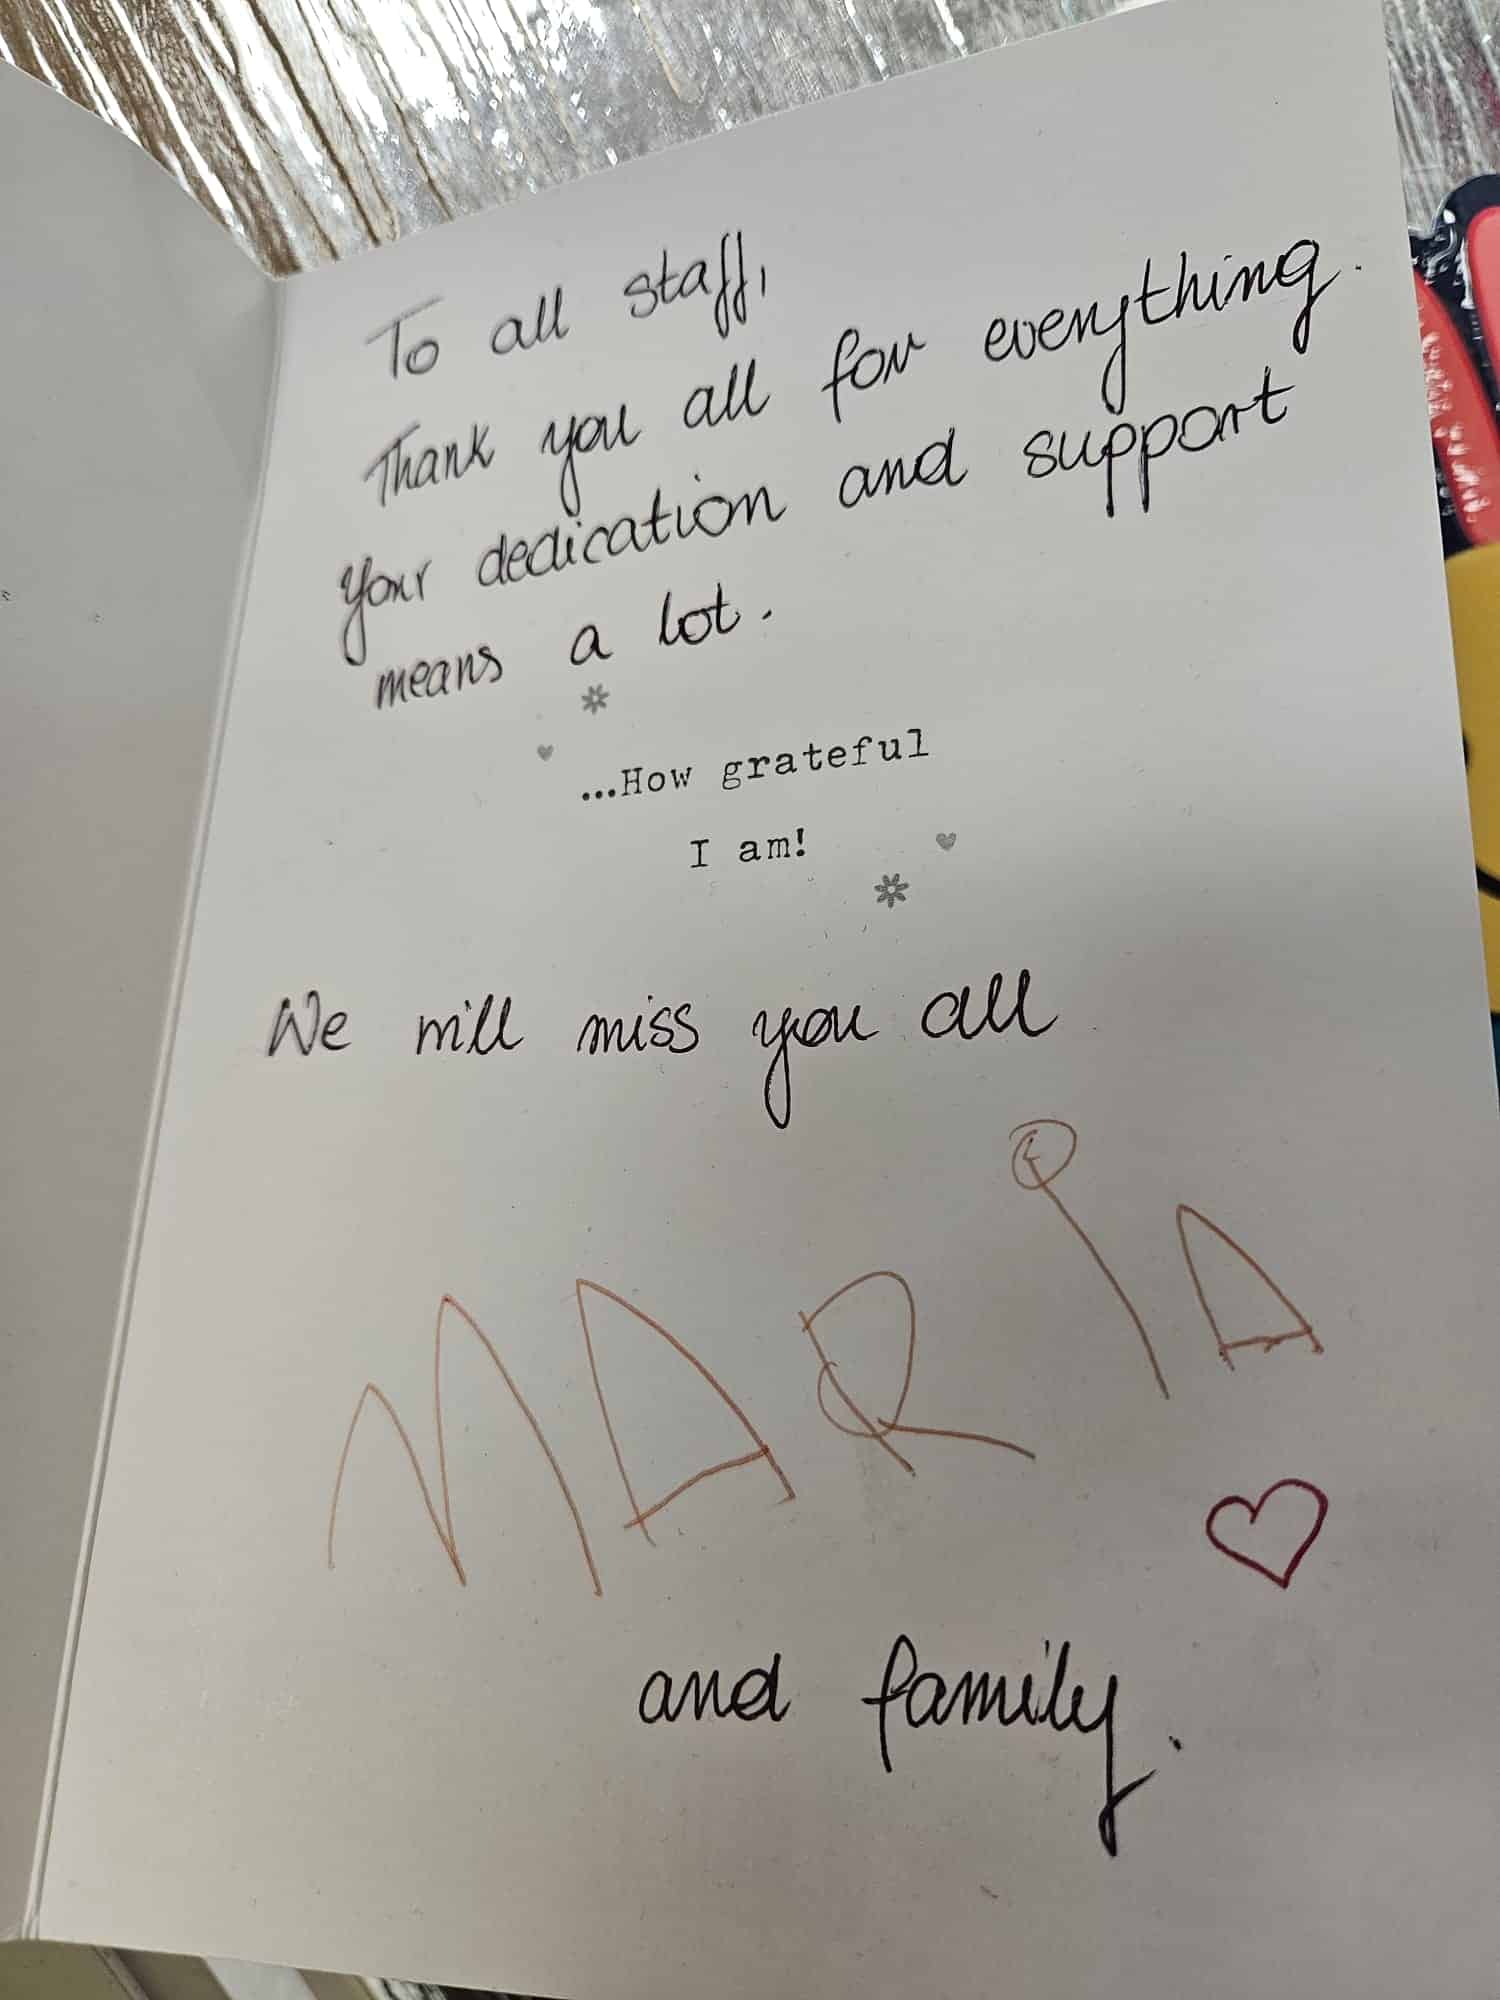 To all staff,
Thank you all for everything.
Your dedication and support
means a lot.
...How grateful
I am!
We will miss you all
MARIA
and family.